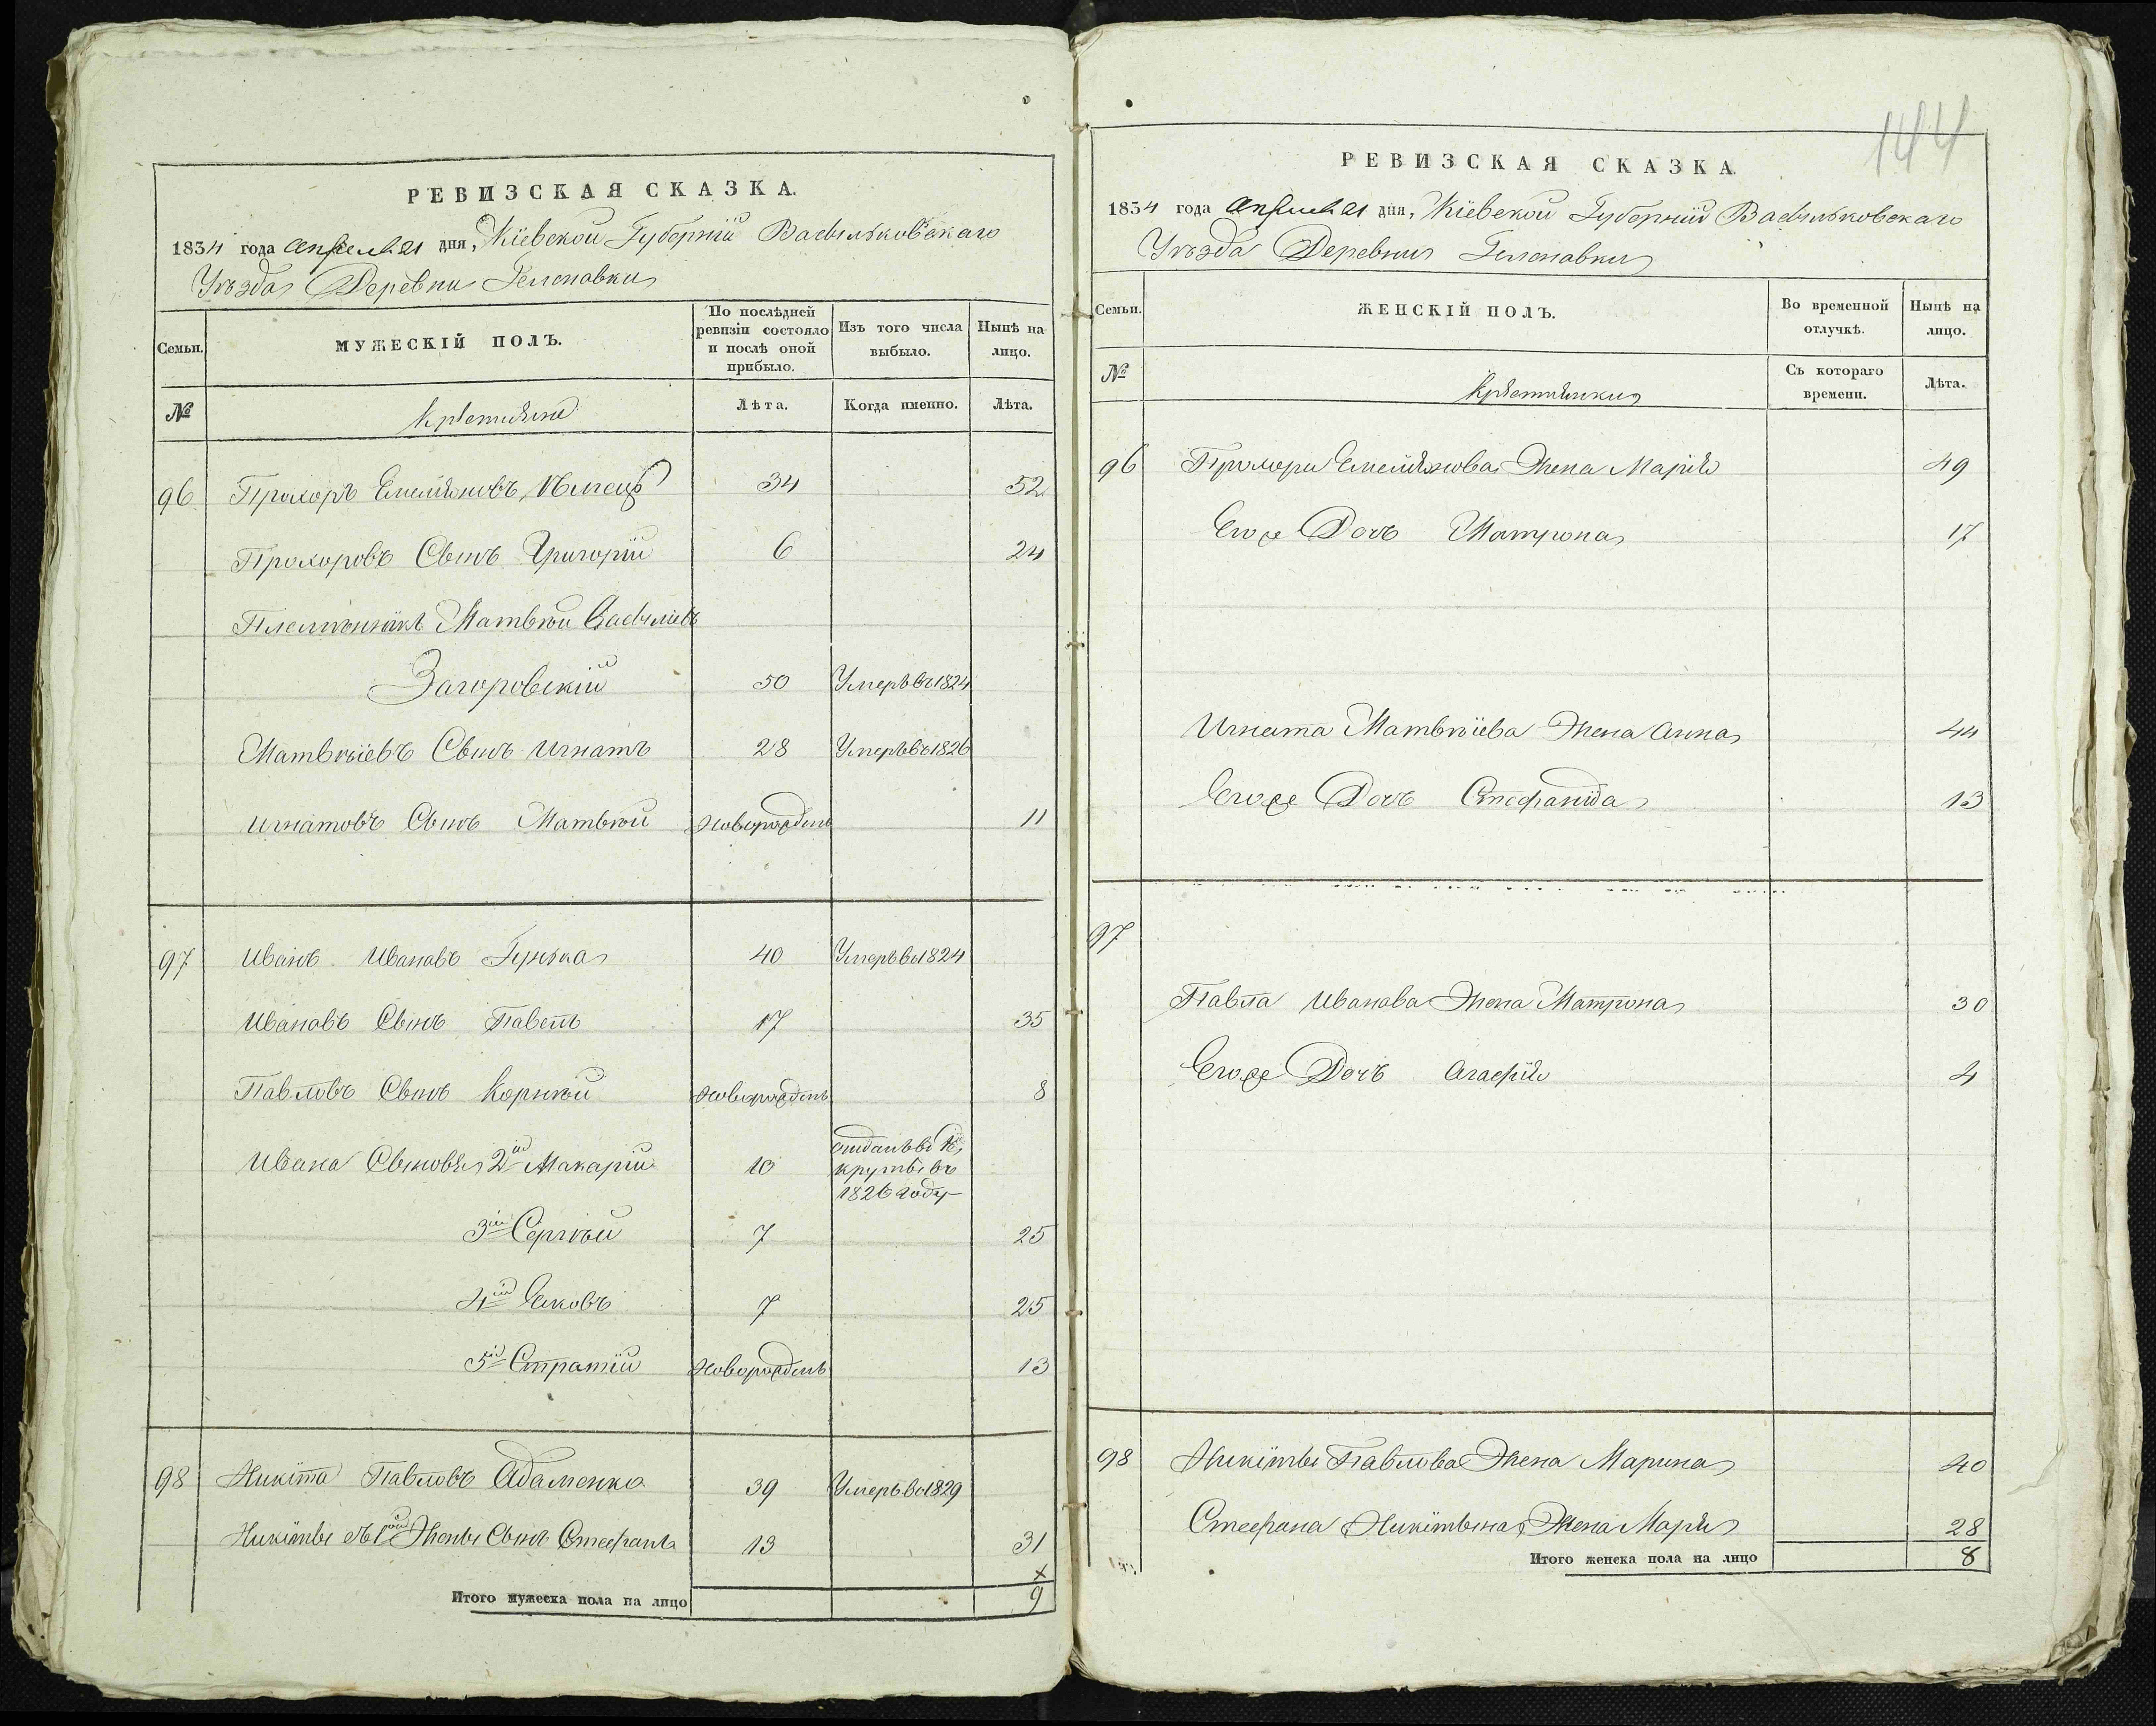 РЕВИЗСКАЯ СКАЗКА.
1834 года апреля 21 дня, Кіевской Губерніи Васильковскаго
Уѣзда Деревни
Семьи.
МУЖЕСКІЙ ПОЛЪ.
По послѣдней ревизіи состояло и послѣ оной прибыло.
Изъ того числа выбыло.
Нынѣ на лицо.
№
Крестяне
Лѣта.
Когда именно.
Лѣта.
96 Прохоръ Емеляновъ 34 52
Прохоровъ Сынъ Григорій 6 24
Племянникъ Матвѣй Василіевъ
Загоровскій 50 Умеръ въ 1824
Матвѣіевъ Сынъ Игнатъ 28 Умеръ въ 1826
Игнатовъ Сынъ Матвѣй Новорожденъ 11
97 Иванъ Ивановъ Гунька 40 Умеръ въ 1824
Ивановъ Сынъ Павелъ 17 35
Павловъ Сынъ Корнѣй Новорожденъ 8
Ивана Сыновья 2й Макарій 10 отданъ въ Рекруты въ 1826 году
3ій Сергѣй 7 25
4ій Яковъ 7 25
5й Стратій Новорожденъ 13
98 Никита Павловъ Адаменко 39 Умеръ въ 1829
Никиты отъ 1ой Жены Сынъ Стефанъ 13 31
Итого мужеска пола на лицо 9
144
РЕВИЗСКАЯ СКАЗКА.
1834 года апреля 21 дня, Кіевской Губерніи Васильковскаго
Уѣзда Деревни
Семьи.
ЖЕНСКІЙ ПОЛЪ.
Во временной отлучкѣ.
Нынѣ на лицо.
№
Крестянки
Съ котораго времени.
Лѣта.
96 Прохора Емелянова Жена Марія 49
Егоже Дочь Матрона 17
Игната Матвѣіева Жена Анна 44
Егоже Дочь Стефанида 13
97
Павла Иванова Жена Матрона 30
Егоже Дочь Агафія 4
98 Никиты Павлова Жена Марина 40
Стефана Никитына Жена Марья 28
Итого женска пола на лицо 8